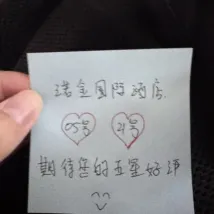 瑞金国际酒店
05号 21号
期待您的五星好评